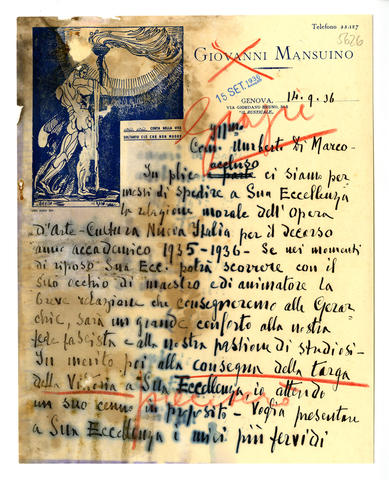 Telefono 22.127
5626
GIOVANNI MANSUINO
GENOVA,
VIA GIORDANO BRUNO,
15 SET. 1936
14-9-36
CONTA NELLA VITA
SOLTANTO CIÒ CHE NON MUORE
Ill.mo
Com. Umberto di Marco-
accluso
In plico a parte ci siamo per
messi di spedire a Sua Eccellenza
la relazione morale dell'Opera
D'Arte-Cultura Nuova Italia per il decorso
anno accademico 1935-1936- Se nei momenti
di riposo Sua Ecc. potrà scorrere con il
suo occhio di maestro e di animatore la
breve relazione che consegneremo alle Gerar-
chie, sarà un grande conforto alla nostra
fede fascista e alla nostra passione di studiosi-
In merito poi alla consegna della targa
della Vittoria a Sua Eccellenza io attendo
un suo cenno in proposito- Voglia presentare
a Sua Eccellenza i miei più fervidi